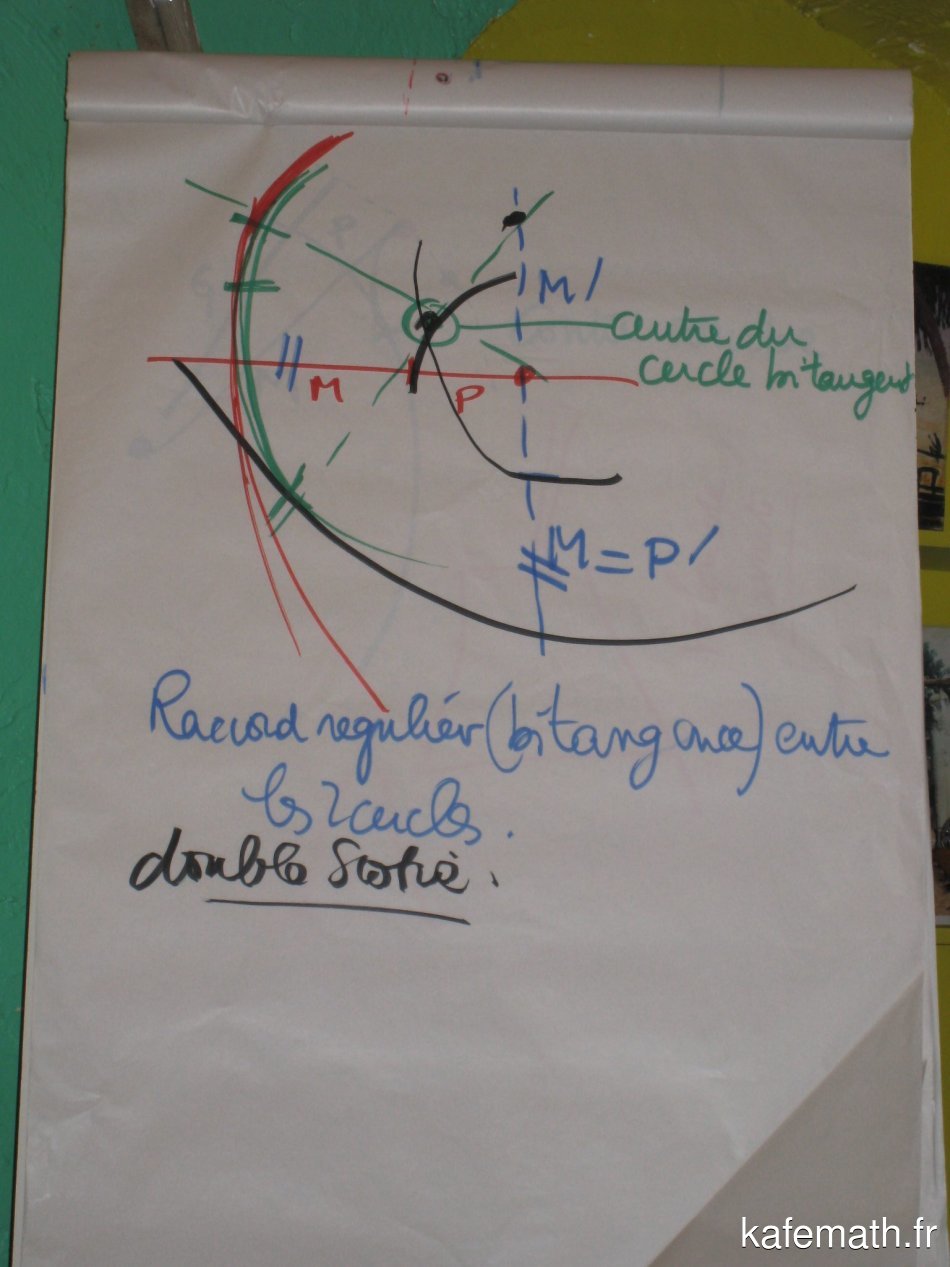 M'
centre du
cercle bitangent
M
P
M = P'
Raccord régulier (bitangence) entre
les 2 cercles.
double Scotie.
kafemath.fr